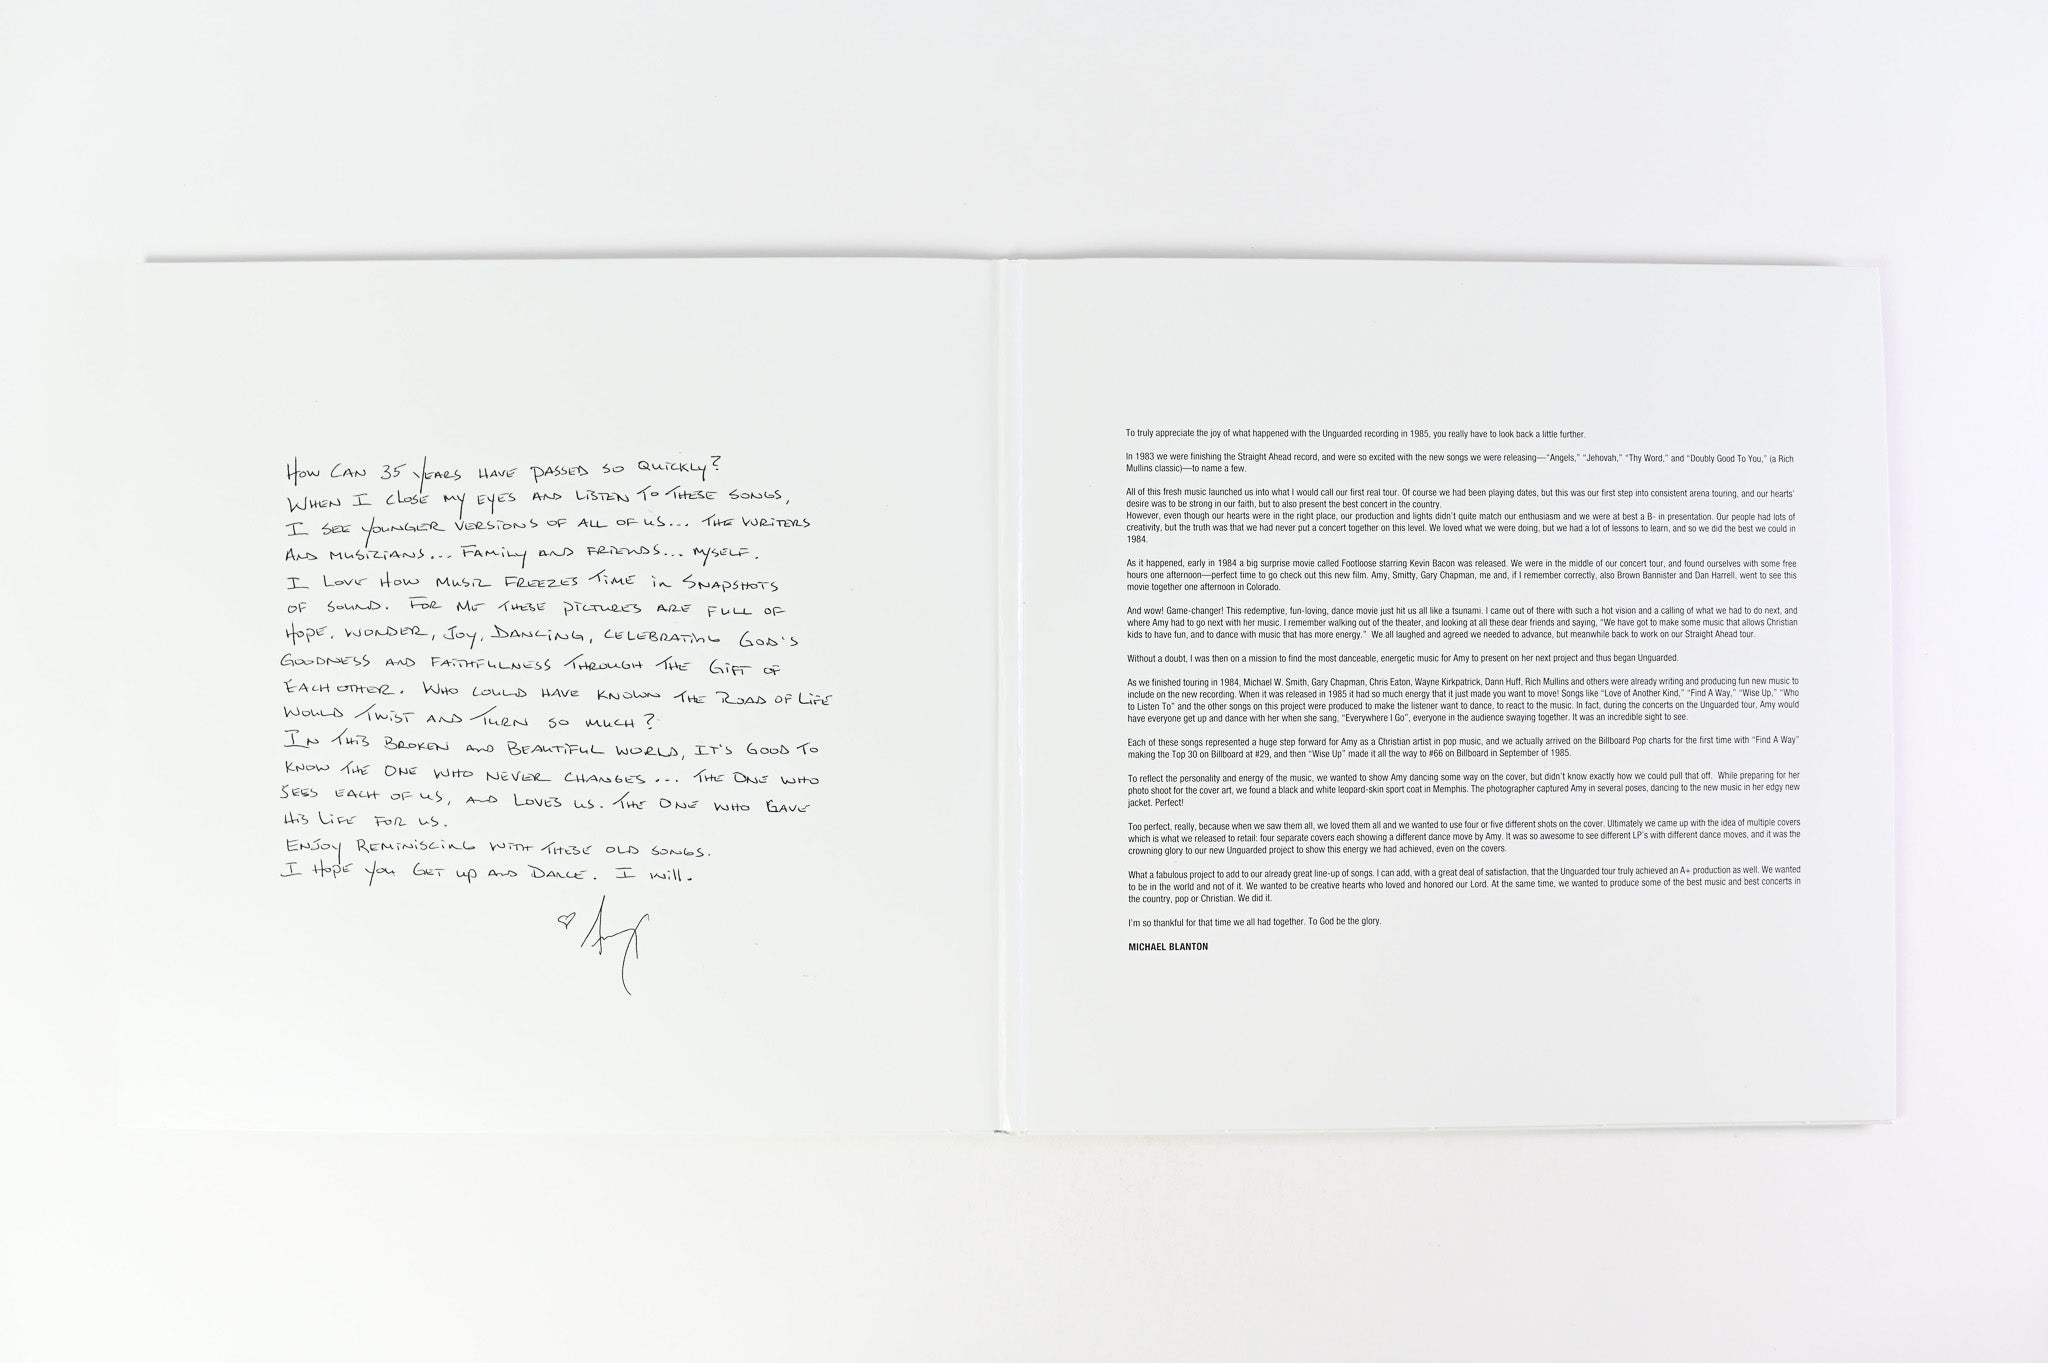 HOW CAN 35 YEARS HAVE PASSED SO QUICKLY?
WHEN I CLOSE MY EYES AND LISTEN TO THESE SONGS,
I SEE YOUNGER VERSIONS OF ALL OF US... THE WRITERS
AND MUSICIANS... FAMILY AND FRIENDS... MYSELF.
I LOVE HOW MUSIC FREEZES TIME IN SNAPSHOTS
OF SOUND. FOR ME THESE PICTURES ARE FULL OF
HOPE, WONDER, JOY, DANCING, CELEBRATING GOD'S
GOODNESS AND FAITHFULNESS THROUGH THE GIFT OF
EACH OTHER. WHO COULD HAVE KNOWN THE ROAD OF LIFE
WOULD TWIST AND TURN SO MUCH?
IN THIS BROKEN AND BEAUTIFUL WORLD, IT'S GOOD TO
KNOW THE ONE WHO NEVER CHANGES... THE ONE WHO
SEES EACH OF US, AND LOVES US. THE ONE WHO GAVE
HIS LIFE FOR US.
ENJOY REMINISCING WITH THESE OLD SONGS.
I HOPE YOU GET UP AND DANCE. I WILL.
♡ Amy
To truly appreciate the joy of what happened with the Unguarded recording in 1985, you really have to look back a little further.
In 1983 we were finishing the Straight Ahead record, and were so excited with the new songs we were releasing—“Angels,” “Jehovah,” “Thy Word,” and “Doubly Good To You,” (a Rich
Mullins classic)—to name a few.
All of this fresh music launched us into what I would call our first real tour. Of course we had been playing dates, but this was our first step into consistent arena touring, and our hearts’
desire was to be strong in our faith, but to also present the best concert in the country.
However, even though our hearts were in the right place, our production and lights didn’t quite match our enthusiasm and we were at best a B- in presentation. Our people had lots of
creativity, but the truth was that we had never put a concert together on this level. We loved what we were doing, but we had a lot of lessons to learn, and so we did the best we could in
1984.
As it happened, early in 1984 a big surprise movie called Footloose starring Kevin Bacon was released. We were in the middle of our concert tour, and found ourselves with some free
hours one afternoon—perfect time to go check out this new film. Amy, Smitty, Gary Chapman, me and, if I remember correctly, also Brown Bannister and Dan Harrell, went to see this
movie together one afternoon in Colorado.
And wow! Game-changer! This redemptive, fun-loving, dance movie just hit us all like a tsunami. I came out of there with such a hot vision and a calling of what we had to do next, and
where Amy had to go next with her music. I remember walking out of the theater, and looking at all these dear friends and saying, “We have got to make some music that allows Christian
kids to have fun, and to dance with music that has more energy.” We all laughed and agreed we needed to advance, but meanwhile back to work on our Straight Ahead tour.
Without a doubt, I was then on a mission to find the most danceable, energetic music for Amy to present on her next project and thus began Unguarded.
As we finished touring in 1984, Michael W. Smith, Gary Chapman, Chris Eaton, Wayne Kirkpatrick, Dann Huff, Rich Mullins and others were already writing and producing fun new music to
include on the new recording. When it was released in 1985 it had so much energy that it just made you want to move! Songs like “Love of Another Kind,” “Find A Way,” “Wise Up,” “Who
to Listen To” and the other songs on this project were produced to make the listener want to dance, to react to the music. In fact, during the concerts on the Unguarded tour, Amy would
have everyone get up and dance with her when she sang, “Everywhere I Go”, everyone in the audience swaying together. It was an incredible sight to see.
Each of these songs represented a huge step forward for Amy as a Christian artist in pop music, and we actually arrived on the Billboard Pop charts for the first time with “Find A Way”
making the Top 30 on Billboard at #29, and then “Wise Up” made it all the way to #66 on Billboard in September of 1985.
To reflect the personality and energy of the music, we wanted to show Amy dancing some way on the cover, but didn’t know exactly how we could pull that off. While preparing for her
photo shoot for the cover art, we found a black and white leopard-skin sport coat in Memphis. The photographer captured Amy in several poses, dancing to the new music in her edgy new
jacket. Perfect!
Too perfect, really, because when we saw them all, we loved them all and we wanted to use four or five different shots on the cover. Ultimately we came up with the idea of multiple covers
which is what we released to retail: four separate covers each showing a different dance move by Amy. It was so awesome to see different LP’s with different dance moves, and it was the
crowning glory to our new Unguarded project to show this energy we had achieved, even on the covers.
What a fabulous project to add to our already great line-up of songs. I can add, with a great deal of satisfaction, that the Unguarded tour truly achieved an A+ production as well. We wanted
to be in the world and not of it. We wanted to be creative hearts who loved and honored our Lord. At the same time, we wanted to produce some of the best music and best concerts in
the country, pop or Christian. We did it.
I’m so thankful for that time we all had together. To God be the glory.
MICHAEL BLANTON